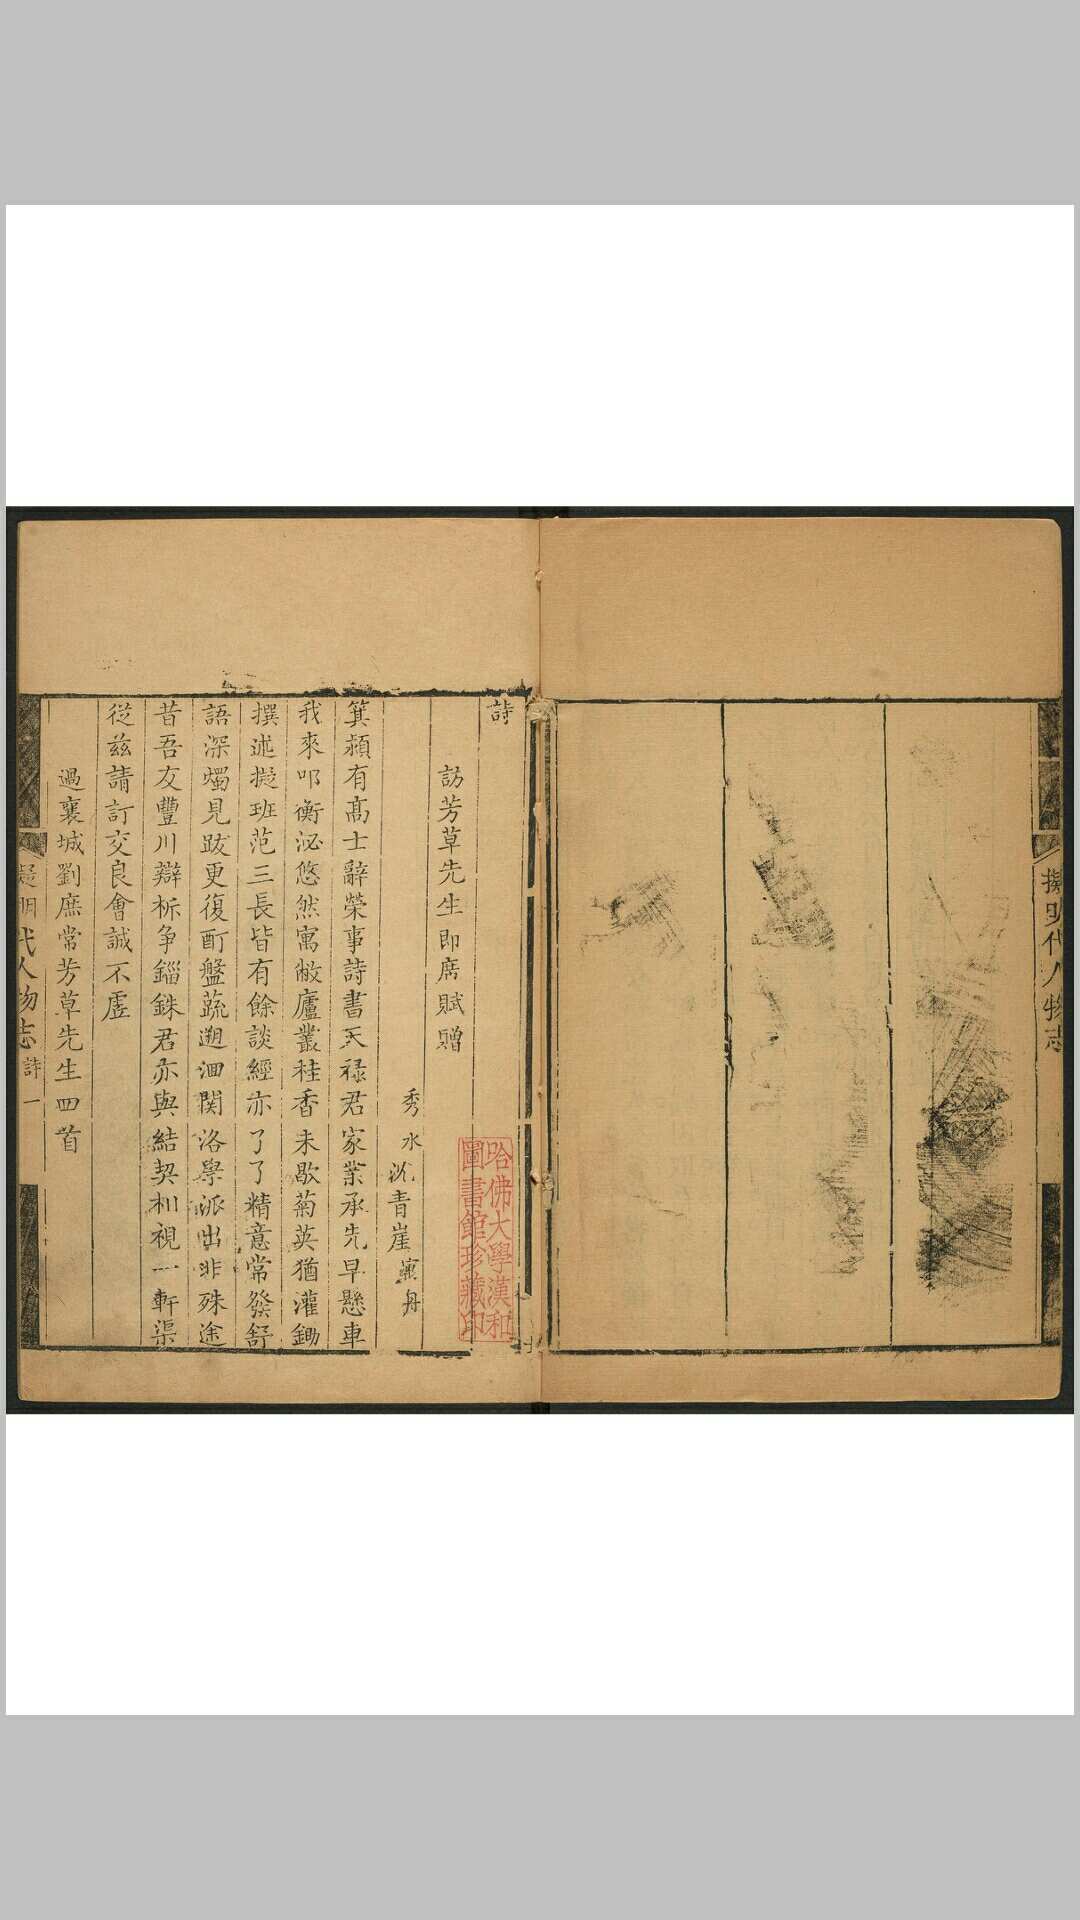 擬明代人物志
詩
訪芳草先生即席賦贈
秀水沈青崖寓舟
箕潁有高士辭榮事詩書天祿君家業承先早懸車
我來叩衡泌悠然寓敝廬叢桂香未歇菊英猶灌鋤
撰述擬班范三長皆有餘談經亦了了精意常發舒
語深燭見跋更復酌盤蔬遡洄関洛學派出非殊途
昔吾友豐川辯析争錙銖君亦與結契相視一軒渠
從兹請訂交良會誠不虛
過襄城劉庶常芳草先生四首
擬明代人物志 詩 一
哈佛大學漢和
圖書館珍藏印